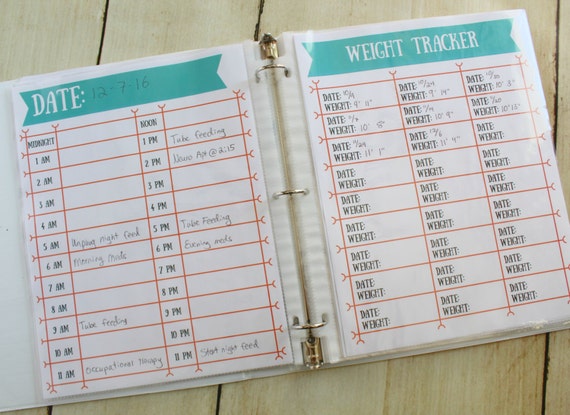 DATE: 12-7-16
MIDNIGHT
1 AM
2 AM
3 AM
4 AM
5 AM Unplug night feed
6 AM Morning meds
7 AM
8 AM
9 AM Tube feeding
10 AM
11 AM Occupational therapy
NOON
1 PM Tube feeding
2 PM Neuro Apt @ 2:15
3 PM
4 PM
5 PM Tube Feeding
6 PM Evening meds
7 PM
8 PM
9 PM
10 PM
11 PM Start night feed
WEIGHT TRACKER
DATE: 10/9 DATE: 10/24 DATE: 10/30
WEIGHT: 9' 11" WEIGHT: 9' 14" WEIGHT: 10' 3"
DATE: DATE: 11/9 DATE: 11/20
WEIGHT: 10' 8" WEIGHT: 10' 9" WEIGHT: 10' 12"
DATE: 11/29 DATE: 12/6 DATE:
WEIGHT: 11' 1" WEIGHT: 11' 4" WEIGHT:
DATE: DATE: DATE:
WEIGHT: WEIGHT: WEIGHT:
DATE: DATE: DATE:
WEIGHT: WEIGHT: WEIGHT:
DATE: DATE: DATE:
WEIGHT: WEIGHT: WEIGHT:
DATE: DATE: DATE:
WEIGHT: WEIGHT: WEIGHT:
DATE: DATE: DATE:
WEIGHT: WEIGHT: WEIGHT:
DATE: DATE: DATE:
WEIGHT: WEIGHT: WEIGHT: